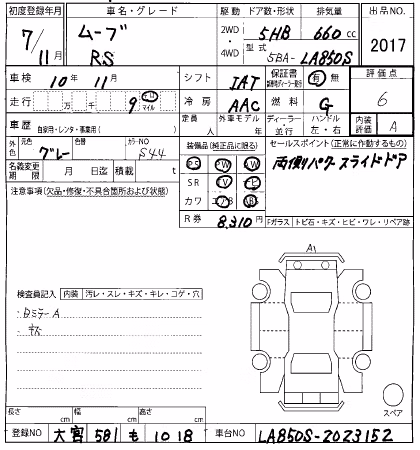 初度登録年月 車名・グレード 駆動 ドア数・形状 排気量 出品NO
7/11月 ムーブ RS 2WD・4WD 5HB 660cc 2017
型式 5BA- LA850S
車検 10年 11月 シフト IAT 保証書 有 無 評価点
走行 万 千 9 km マイル 冷房 AAC 燃料 G 6
車歴 自家用・レンタ・事業用( ) 定員 人 外車モデル 年 ディーラー・並行 ハンドル 左・右 内装評価 A
外色 元色 グレー 色替 カラーNO S44 装備品(純正品に限る) セールスポイント(正常に作動するもの)
名義変更期限 月 日迄 積載 t PS PW SW 両側パワースライドドア
注意事項(欠品・修復・不具合箇所および状態) SR ナビ
カワ エアB ABS
R券 8,310円 Fガラス トビ石・キズ・ヒビ・ワレ・リペア跡
A1
検査員記入 内装 汚レ・スレ・キズ・キレ・コゲ・穴
・BミラーA
・キズ
スペア
長さ cm 幅 cm 高さ cm
登録NO 大宮 581 も 1018 車台NO LA850S-2023152